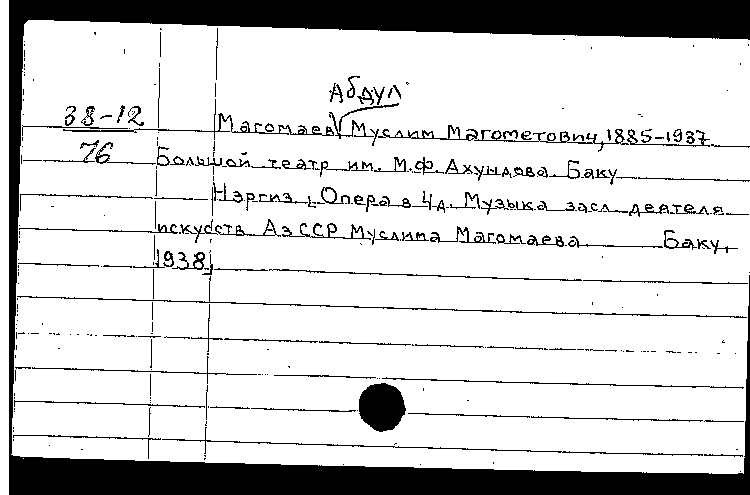 Абдул
38-12
Магомаев Муслим Магометович, 1885-1937
76
Большой театр им. М.Ф. Ахундова. Баку
Нэргиз; Опера в 4д. Музыка засл. деятеля
искусств АзССР Муслима Магомаева. Баку,
1938.